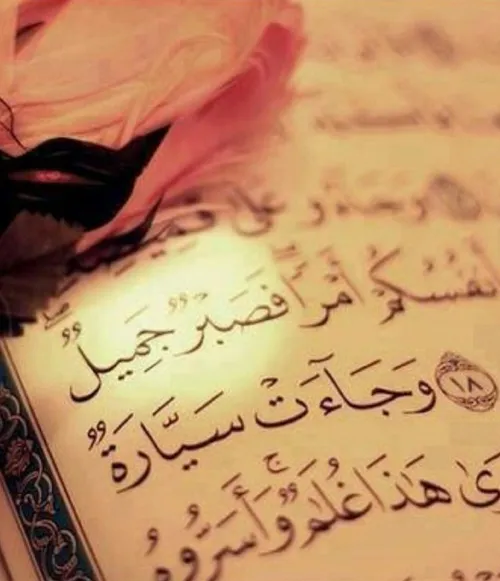 وَجَآءُو عَلَىٰ قَمِيصِهِ
أَنفُسُكُمْ أَمْرًا ۖ فَصَبْرٌ جَمِيلٌ ۖ
١٨ وَجَآءَتْ سَيَّارَةٌ
هَٰذَا غُلَٰمٌ ۚ وَأَسَرُّوهُ